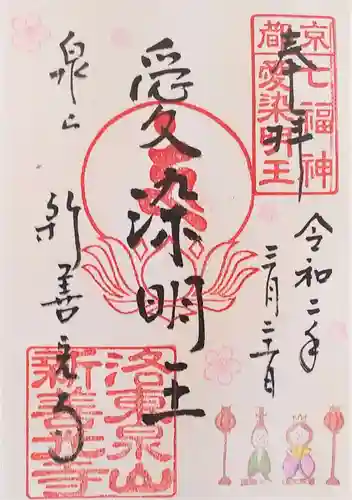 京都
七福神
愛染明王
奉拝
令和二年
三月
愛染明王
泉山
新善光寺
洛東泉山
新善光寺